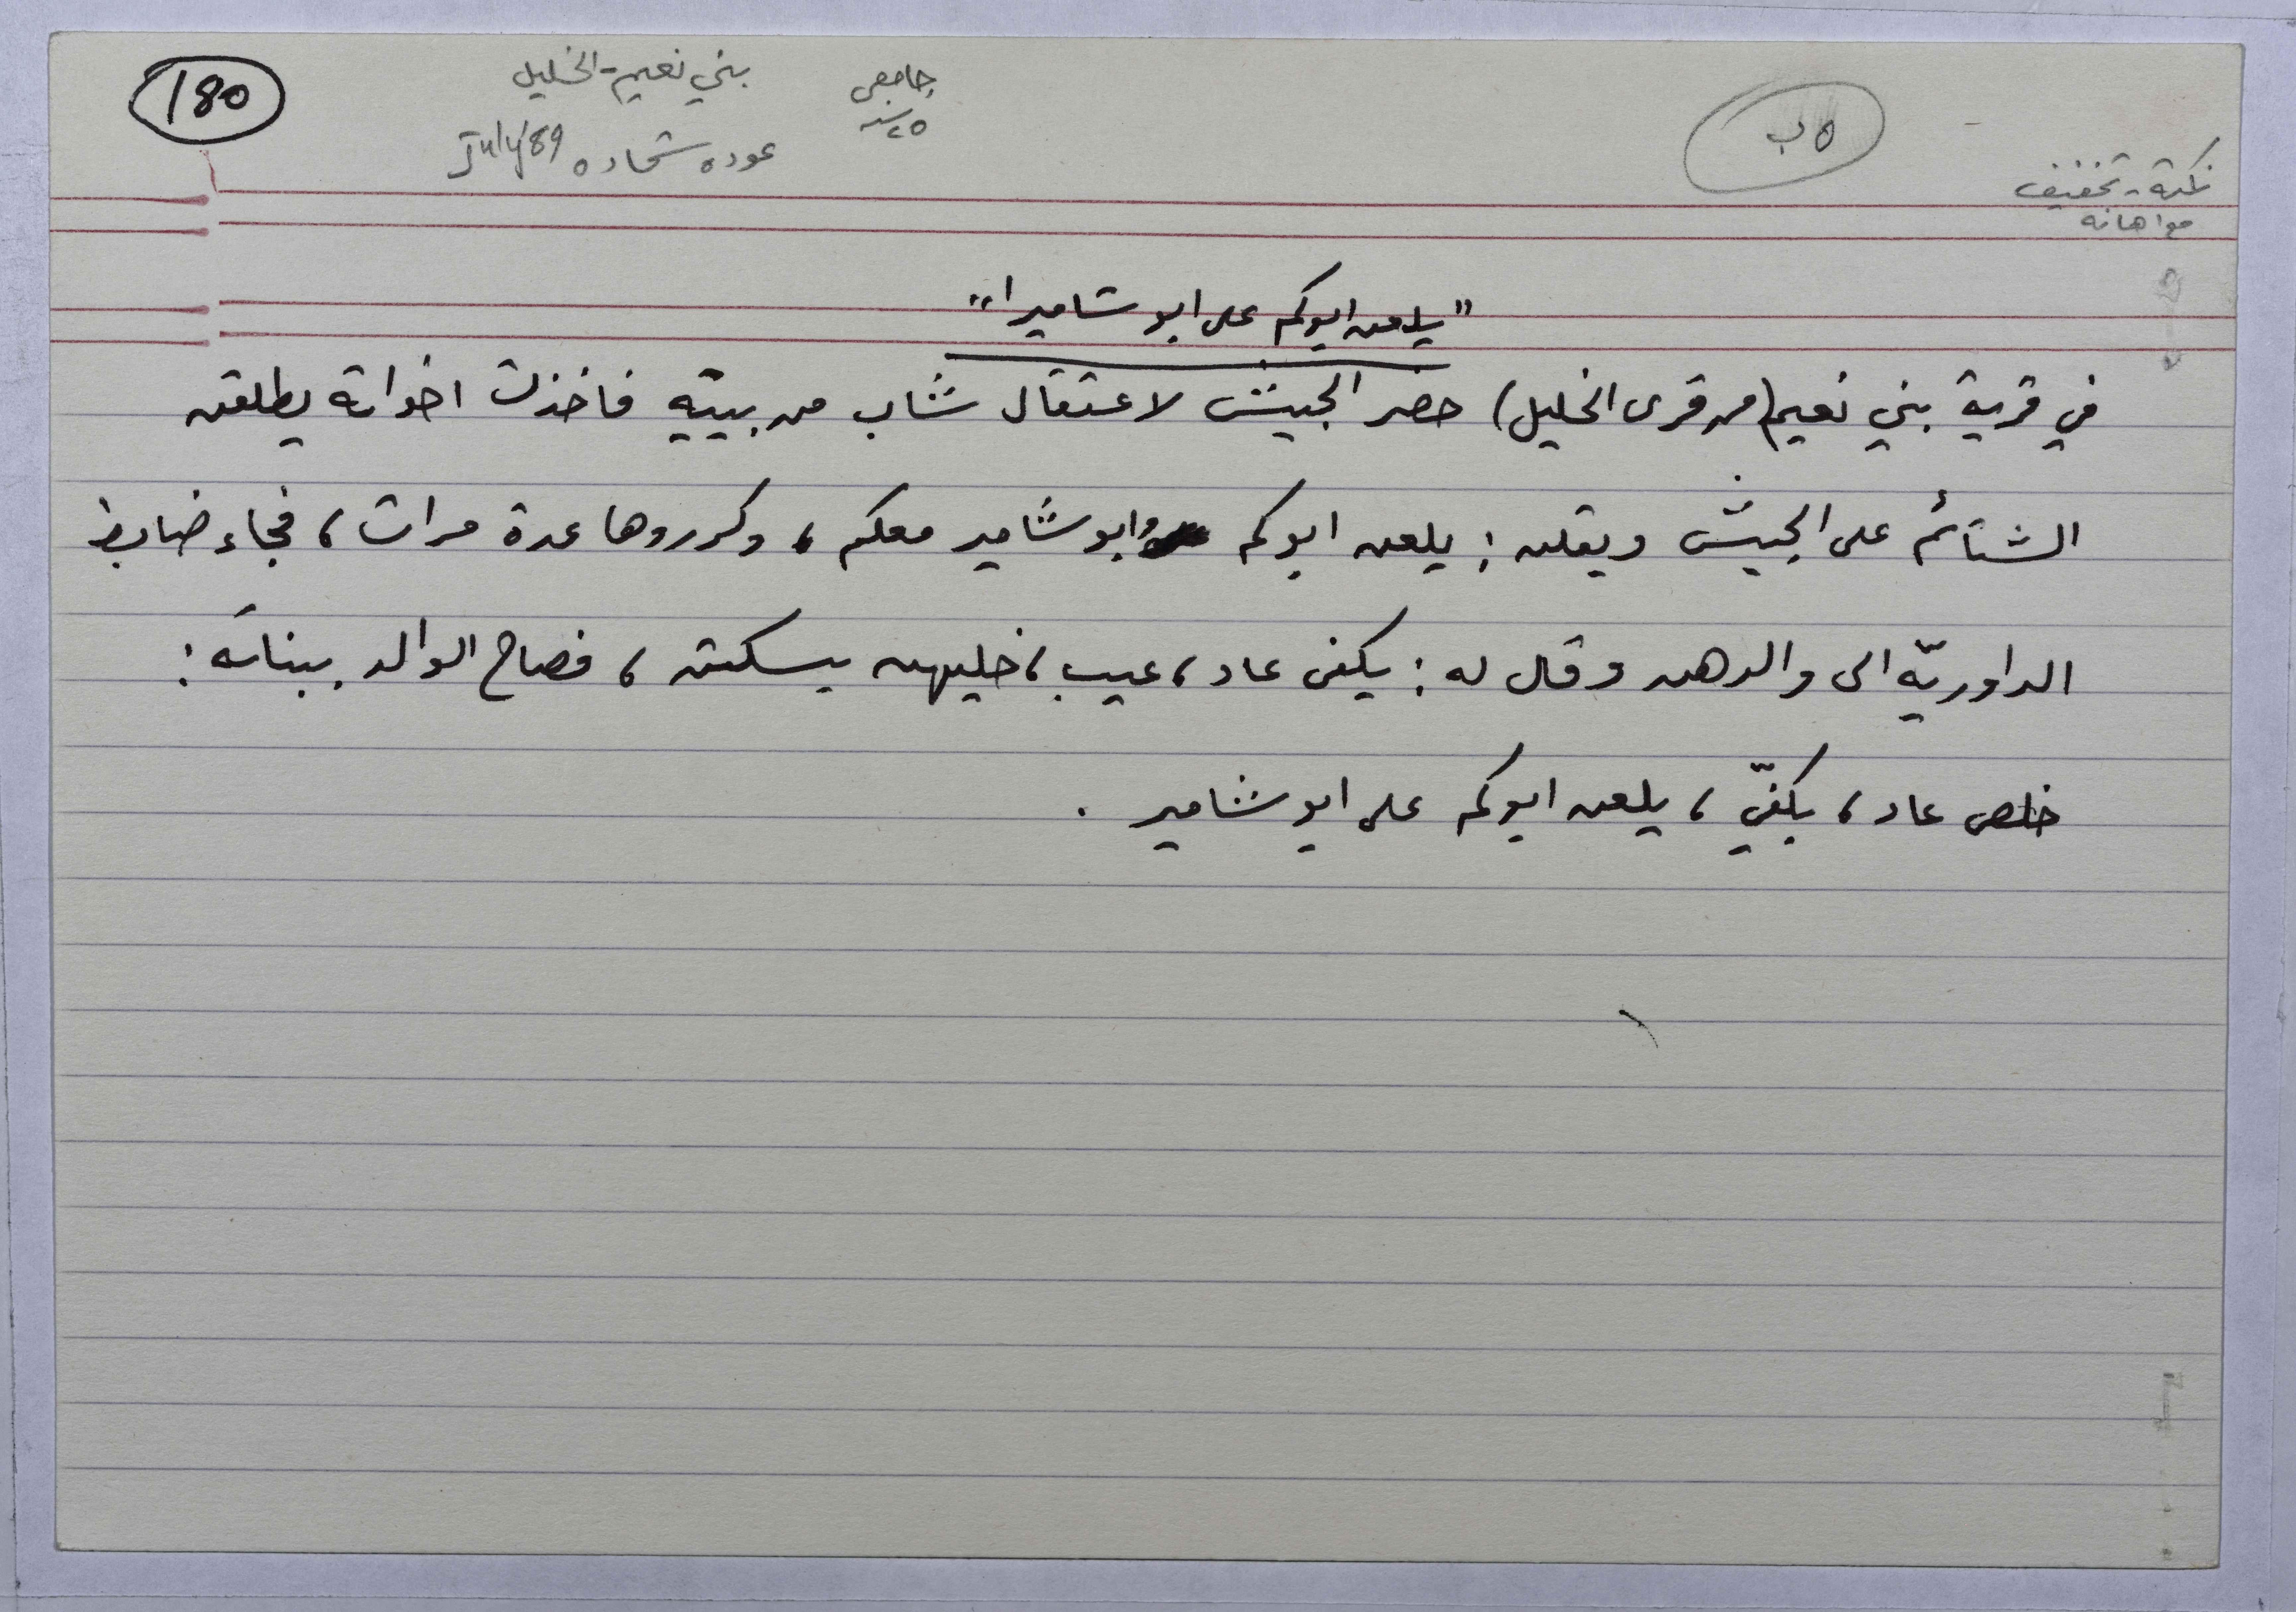 180
بني نعيم - الخليل
جامعي
٢٥ سنة
عوده شحاده July '89
٥ ب
نكتة - تخفيف
مع اهانه
"يلعن ابوكم على ابو شاميرا"
في قرية بني نعيم (من قرى الخليل) حضر الجيش لاعتقال شاب من بيته فاخذت اخواته يطلقن
الشتائم على الجيش ويقلن: يلعن ابوكم وابو شامير معكم، وكرروها عدة مرات، فجاء ضابط
الداوريّه الى والدهن وقال له: يكفى عاد، عيب، خليهن يسكتن، فصاح الوالد ببناته:
خلص عاد، بكفّي، يلعن ابوكم على ابو شامير.